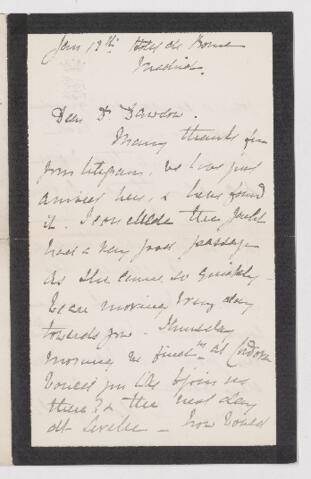 Jan 12th Hotel de Rome
Madrid.
Dear Dr Dawdon.
Many thanks for
your telegram, we have just
arrived here, & have found
it. I conclude the Yacht
had a very good passage
as she came so quickly -
We are moving every day
towards you - Thursday
Morning we find at Cordova
Would you like to join us
there? & the next day
at Seville - how would